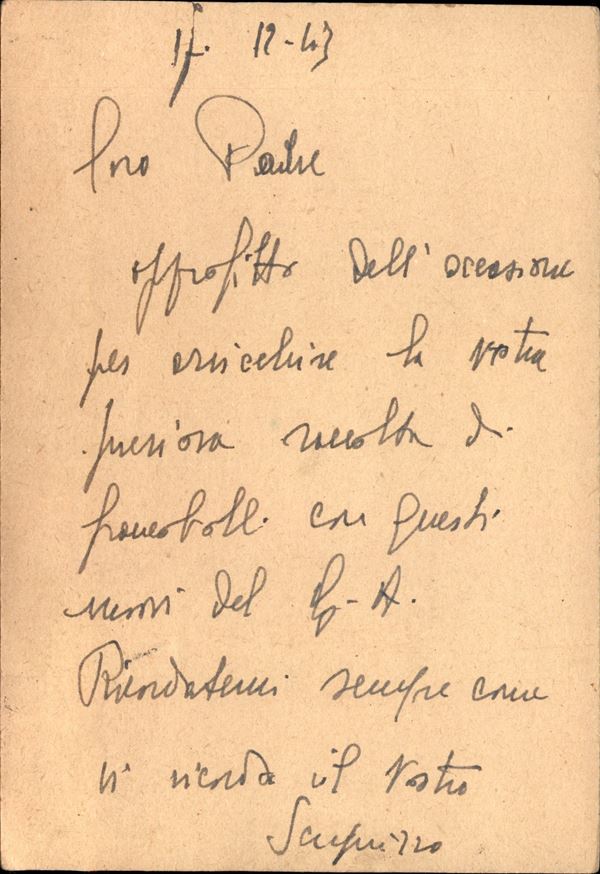 17. 12-43
Caro Padre
approfitto dell'occasione
per arricchire la vostra
preziosa raccolta di
francobolli con questi
nuovi del
Ricordatemi sempre come
vi ricorda il Vostro